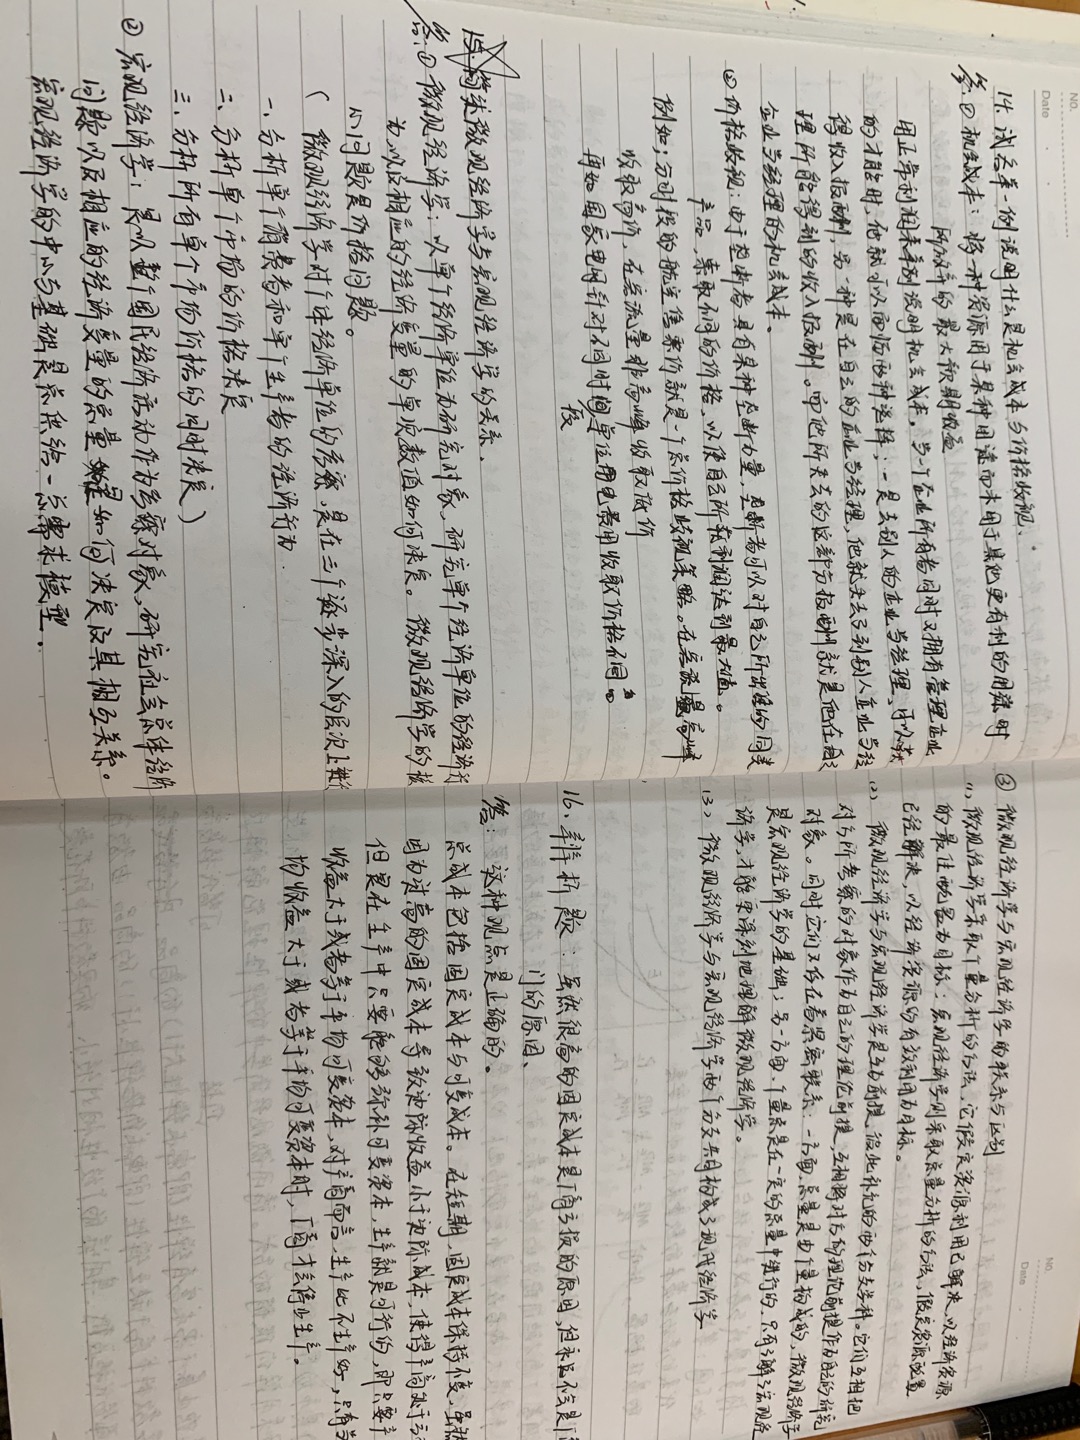 No.
Date
14. 试各举一例说明什么是机会成本与价格歧视、
答：① 机会成本：将一种资源用于某种用途而未用于其他更有利的用途时
所放弃的最大预期收益
用正常利润来举例说明机会成本。当一个企业所有者同时又拥有管理企业
的才能时，他就可以面临两种选择：一是去别人的企业当经理、可以获
得收入报酬，另一种是在自己的企业当经理，他就失去了到别人企业当经
理所能得到的收入报酬。而他所失去的这部分报酬就是他在自己
企业当经理的机会成本。
② 价格歧视：由于垄断者具有某种垄断力量，垄断者可以对自己所出售的同类
产品，采取不同的价格、以使自己所获利润达到最大值。
例如：分时段的航空售票价就是一个
收取高价，在客流量非高峰收取低价
再如国家电网针对不同时间单位用电费用收取价格不同
段
15. 简述微观经济学与宏观经济学的关系、
答：① 微观经济学：以单个经济单位为研究对象，研究单个经济单位的经济行
为，以及相应的经济变量的单项数值如何决定。微观经济学的核
心问题是价格问题。
（ 微观经济学对个体经济单位的考察，是在三个逐步深入的层次上进行
一、分析单个消费者和单个生产者的经济行为.
二、分析单个市场的价格决定
三、分析所有单个市场价格的同时决定）
② 宏观经济学：是以整个国民经济活动作为考察对象，研究社会总体经济
问题以及相应的经济变量的总量是如何决定及其相互关系。
宏观经济学的中心与基础是总供给－总需求模型.
No.
Date
③ 微观经济学与宏观经济学的联系与区别
(1) 微观经济学采取个量分析的方法，它假定资源利用已解决，以经济资源
的最佳配置为目标；宏观经济学则采取总量分析的方法，假定资源配置
已经解决，以经济资源的有效利用为目标。
(2) 微观经济学与宏观经济学是互为前提，彼此补充的两个分支学科。它们互相把
对方所考察的对象作为自己的理论前提，互相将对方的理论前提作为自己的研究
对象。同时它们又存在着紧密联系：一方面，总量是由个量构成的，微观经济学
是宏观经济学的基础；另一方面，个量总是在一定的总量中进行的，只有了解了宏观经
济学，才能更深刻地理解微观经济学。
(3) 微观经济学与宏观经济学两个分支共同构成了现代经济学
16. 辨析题：虽然很高的固定成本是厂商亏损的原因，但永远不会是厂
门的原因、
答：这种观点是正确的。
总成本包括固定成本与可变成本。在短期，固定成本保持不变，虽然
因为过高的固定成本导致边际收益小于边际成本，使得产商处于亏
但是在生产中只要能够弥补可变资本，生产就是可行的，即只要平
收益大于或者等于平均可变成本，对产商而言，生产比不生产好，只有当
均收益大于或者等于平均可变资本时，厂商才会停止生产。